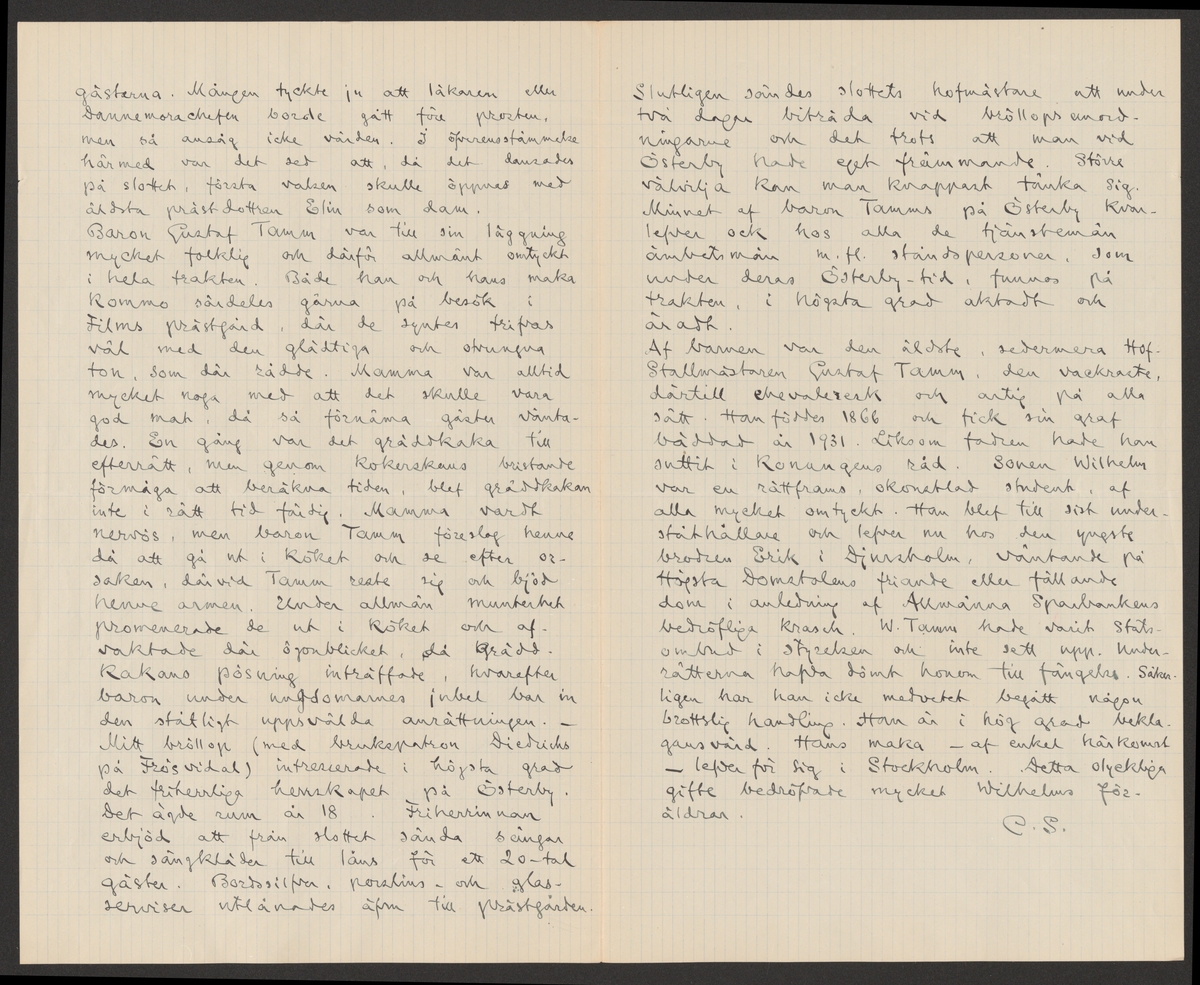 gästerna. Mången tyckte ju att läkaren eller
Dannemorachefen borde gått före prosten,
men så ansåg icke värden. I öfverensstämmelse
härmed var det sed att, då det dansades
på slottet, första valsen skulle öppnas med
äldsta prästdottren Elin som dam.
Baron Gustaf Tamm var till sin läggning
mycket folklig och därför allmänt omtyckt
i hela trakten. Både han och hans maka
kommo särdeles gärna på besök i
Films prästgård, där de syntes trifvas
väl med den glädtiga och otvungna
ton, som där rådde. Mamma var alltid
mycket noga med att det skulle vara
god mat, då så förnäma gäster vänta-
des. En gång var det gräddkaka till
efterrätt, men genom kokerskans bristande
förmåga att beräkna tiden, blef gräddkakan
inte i rätt tid färdig. Mamma vardt
nervös, men baron Tamm föreslog henne
då att gå ut i köket och se efter or-
saken, därvid Tamm reste sig och bjöd
henne armen. Under allmän munterhet
promenerade de ut i köket och af-
vaktade där ögonblicket, då grädd-
kakans pösning inträffade, hvarefter
baron under ungdomarnes jubel bar in
den ståtligt uppsvälda anrättningen. —
Mitt bröllop (med brukspatron Diedrichs
på Frösvidal) intresserade i högsta grad
det friherrliga herrskapet på Österby.
Det ägde rum år 18 . Friherrinnan
erbjöd att från slottet sända sängar
och sängkläder till låns för ett 20-tal
gäster. Bordssilfver, porslins- och glas-
serviser utlånades äfven till prästgården.
Slutligen sändes slottets hofmästare att under
två dagar biträda vid bröllopsanord-
ningarne och det trots att man vid
Österby hade eget främmande. Större
välvilja kan man knappast tänka sig.
Minnet af baron Tamms på Österby kvar-
lefver ock hos alla de tjänstemän
ämbetsmän m.fl. ståndspersoner, som
under deras Österby-tid, funnos på
trakten, i högsta grad aktadt och
äradt.
Af barnen var den äldste, sedermera Hof-
Stallmästaren Gustaf Tamm, den vackraste,
därtill chevaleresk och artig på alla
sätt. Han föddes 1866 och fick sin graf
bäddad år 1931. Liksom fadren hade han
suttit i Konungens råd. Sonen Wilhelm
var en rättfram, okonstlad student, af
alla mycket omtyckt. Han blef till sist under-
ståthållare och lefver nu hos den yngste
brodren Erik i Djursholm, väntande på
Högsta Domstolens friande eller fällande
dom i anledning af Allmänna Sparbankens
bedröfliga krasch. W. Tamm hade varit Stats-
ombud i styrelsen och inte sett upp. Under-
rätterna hafva dömt honom till fängelse. Säker-
ligen har han icke medvetet begått någon
brottslig handling. Han är i hög grad bekla-
gansvärd. Hans maka — af enkel härkomst
— lefver för sig i Stockholm. Detta olyckliga
gifte bedröfvade mycket Wilhelms för-
äldrar.
C. S.